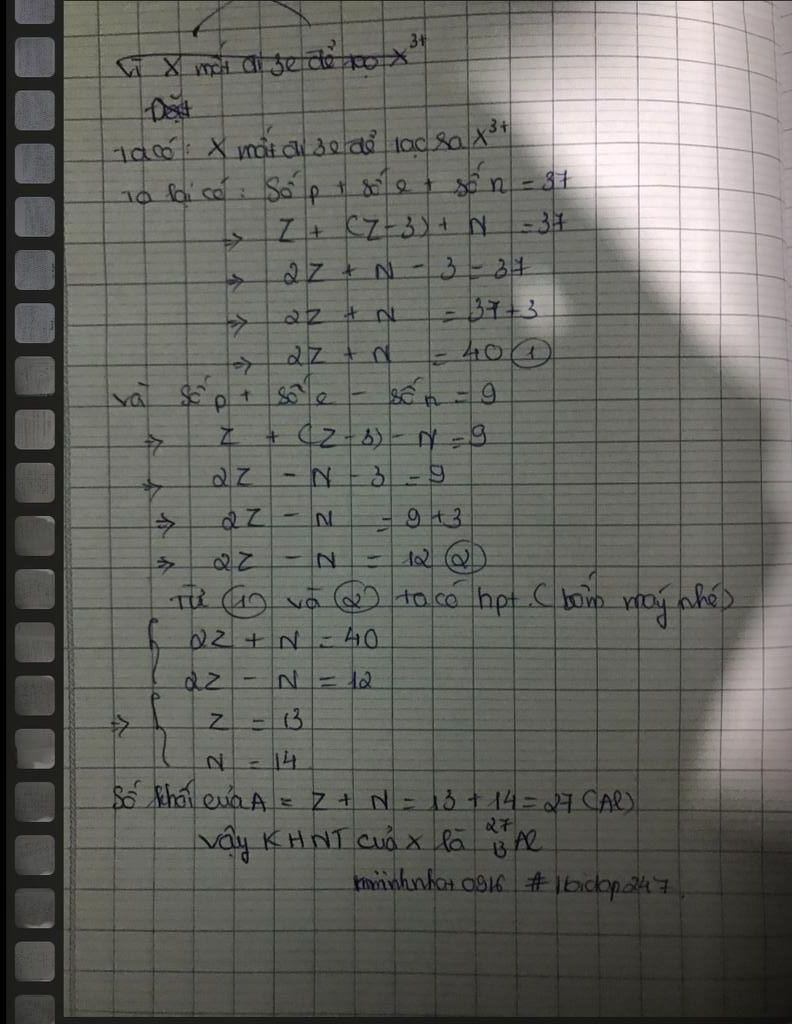 Vì X mất đi 3e để tạo X³⁺
Đặt
Ta có: X mất đi 3e để tạo ra X³⁺
Ta lại có: Số p + số e + số n = 37
⇒ Z + (Z-3) + N = 37
⇒ 2Z + N - 3 = 37
⇒ 2Z + N = 37+3
⇒ 2Z + N = 40 (1)
và số p + số e - số n = 9
⇒ Z + (Z-3) - N = 9
⇒ 2Z - N - 3 = 9
⇒ 2Z - N = 9 +3
⇒ 2Z - N = 12 (2)
Từ (1) và (2) ta có hpt. (bấm máy nhé)
{ 2Z + N = 40
2Z - N = 12
⇒ { Z = 13
N = 14
Số khối của A = Z + N = 13 + 14 = 27 (Al)
Vậy KHNT của X là ²⁷₁₃Al
0916 #